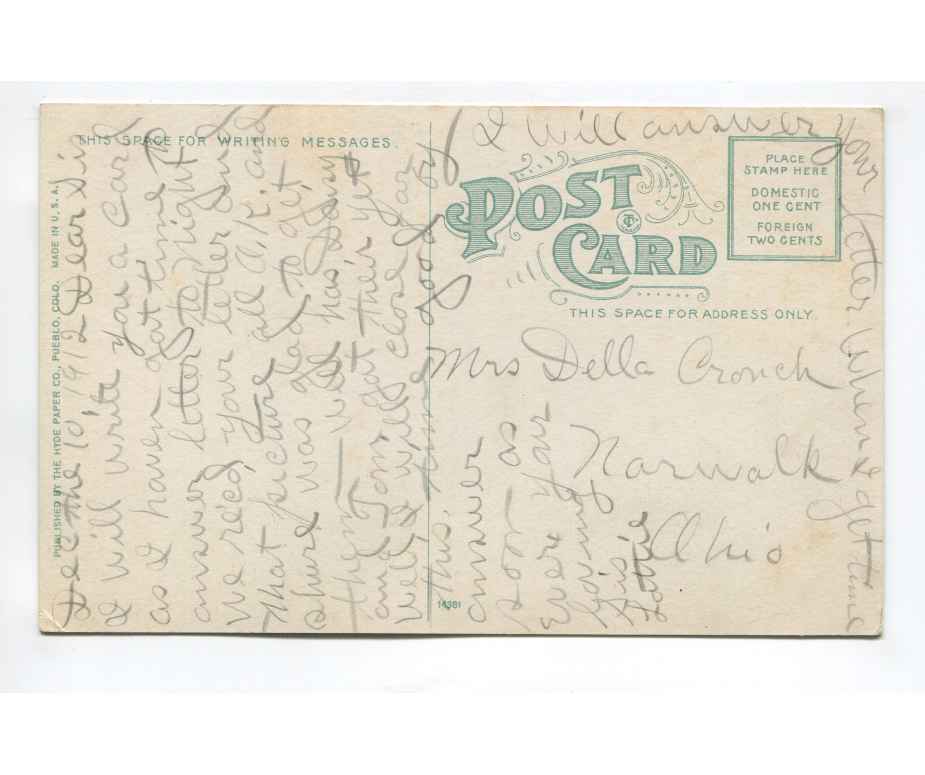 THIS SPACE FOR WRITING MESSAGES.
PUBLISHED BY THE HYDE PAPER CO., PUEBLO, COLO. MADE IN U.S.A.
POST CARD
TC
THIS SPACE FOR ADDRESS ONLY.
PLACE
STAMP HERE
DOMESTIC
ONE CENT
FOREIGN
TWO CENTS
14381
10 1912 Dear Sis
I will write you a card
as I haven got time to
answer letter to night
we rec'ed your letter and
that picture all O.K. and
shure was glad to git
them
and Tom got their yet
Well I will close for
this time good by
answer
soon as
Ever your
loving
Sis
Lottie
I will answer your letter. When I get time
Mrs Della Crouch
Norwalk
Ohio